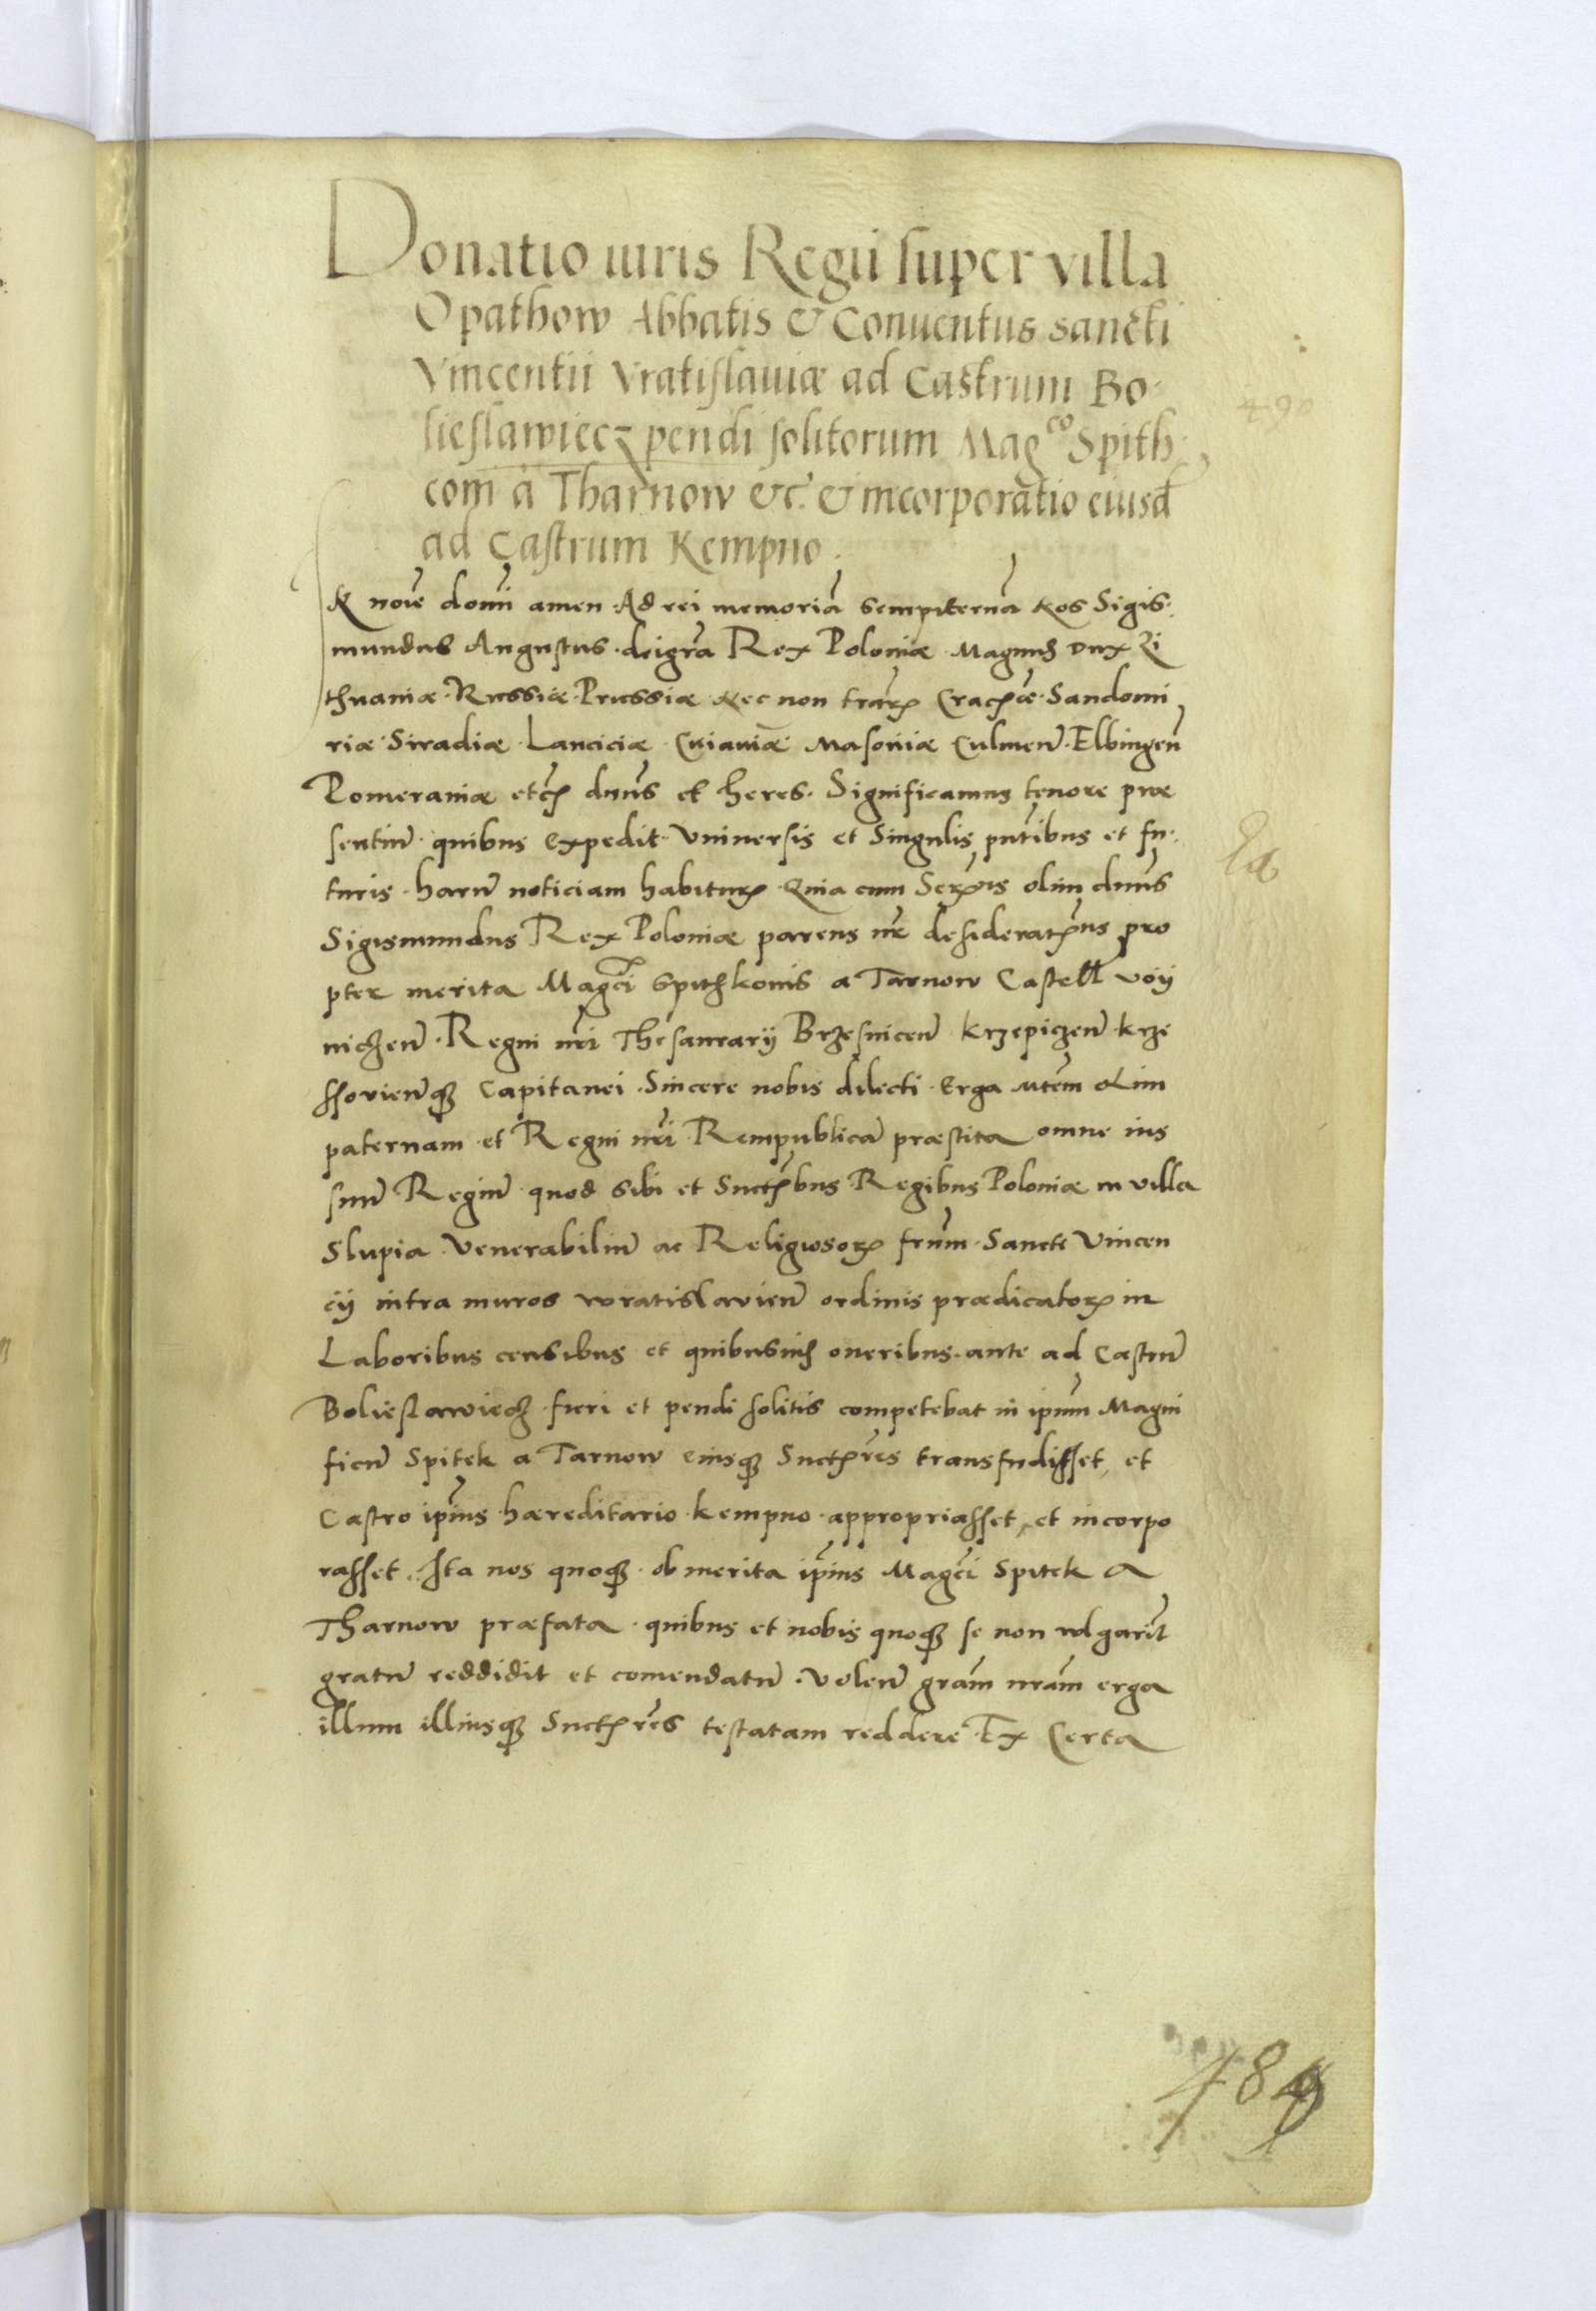 Donatio iuris Regii super villa
Opathow Abbatis & Conuentus sancti
Vincentii Vratislauiæ ad Castrum Bo-
lieslawiecz pendi solitorum Mag^co Spith
com à Tharnow &c. & incorporatio eiusd̄
ad Castrum Kempno.
490
IN noīe domī amen Ad rei memoriā sempiternā Nos Sigis-
mundus Augustus dei grā Rex Poloniæ Magnus Dux Li
thuaniæ Russiæ Prussiæ Nec non trārꝝ Cracoviæ Sandomi
riæ Siradiæ Lanciciæ Cuiaviæ Masoviæ Culmen̄ Elbingen̄
Pomeraniæ etcꝫ dnūs et heres. Significamus tenore præ
sentiū quibus expedit Vniuersis et Singulis pntībus et fu-
turis harū noticiam habiturꝝ Quia cum Serꝰmus olim dnūs
Sigismundus Rex Poloniæ parens nr̄ desideratꝰmus pro
pter merita Magcī Spithkonis a Tarnow Castell̄ Voy
niczen̄ Regni nrī Thesaurarii Brzesnicen̄ Krzepiczen̄ Krze
ssovien̄qꝫ Capitanei Sincere nobis dilecti Erga Mtēm olim
paternam et Regni nrī Rempublicā præstita omne ius
suū Regiū quod sibi et Suctꝰbus Regibus Poloniæ in villa
Slupia Venerabiliū ac Religiosorꝝ frūm Sancte Vincen
cii intra muros wratislavien̄ ordinis prædicatorꝝ in
Laboribus censibus et quibusuis oneribus ante ad Castrū
Bolieslawiecz fieri et pendi solitis competebat in ipūm Magni
ficū Spitek a Tarnow eiusqꝫ Suctꝰres transfudisset, et
Castro ipīus hæreditario Kempno appropriasset, et incorpo
rasset. Ita nos quoqꝫ ob merita ipīus Magcī Spitek a
Tharnow præfata quibus et nobis quoqꝫ se non wlgarīt
gratū reddidit et comendatū. Volen̄ grām nrām erga
illum illiusqꝫ Suctꝰres testatam reddere Ex Certa
489